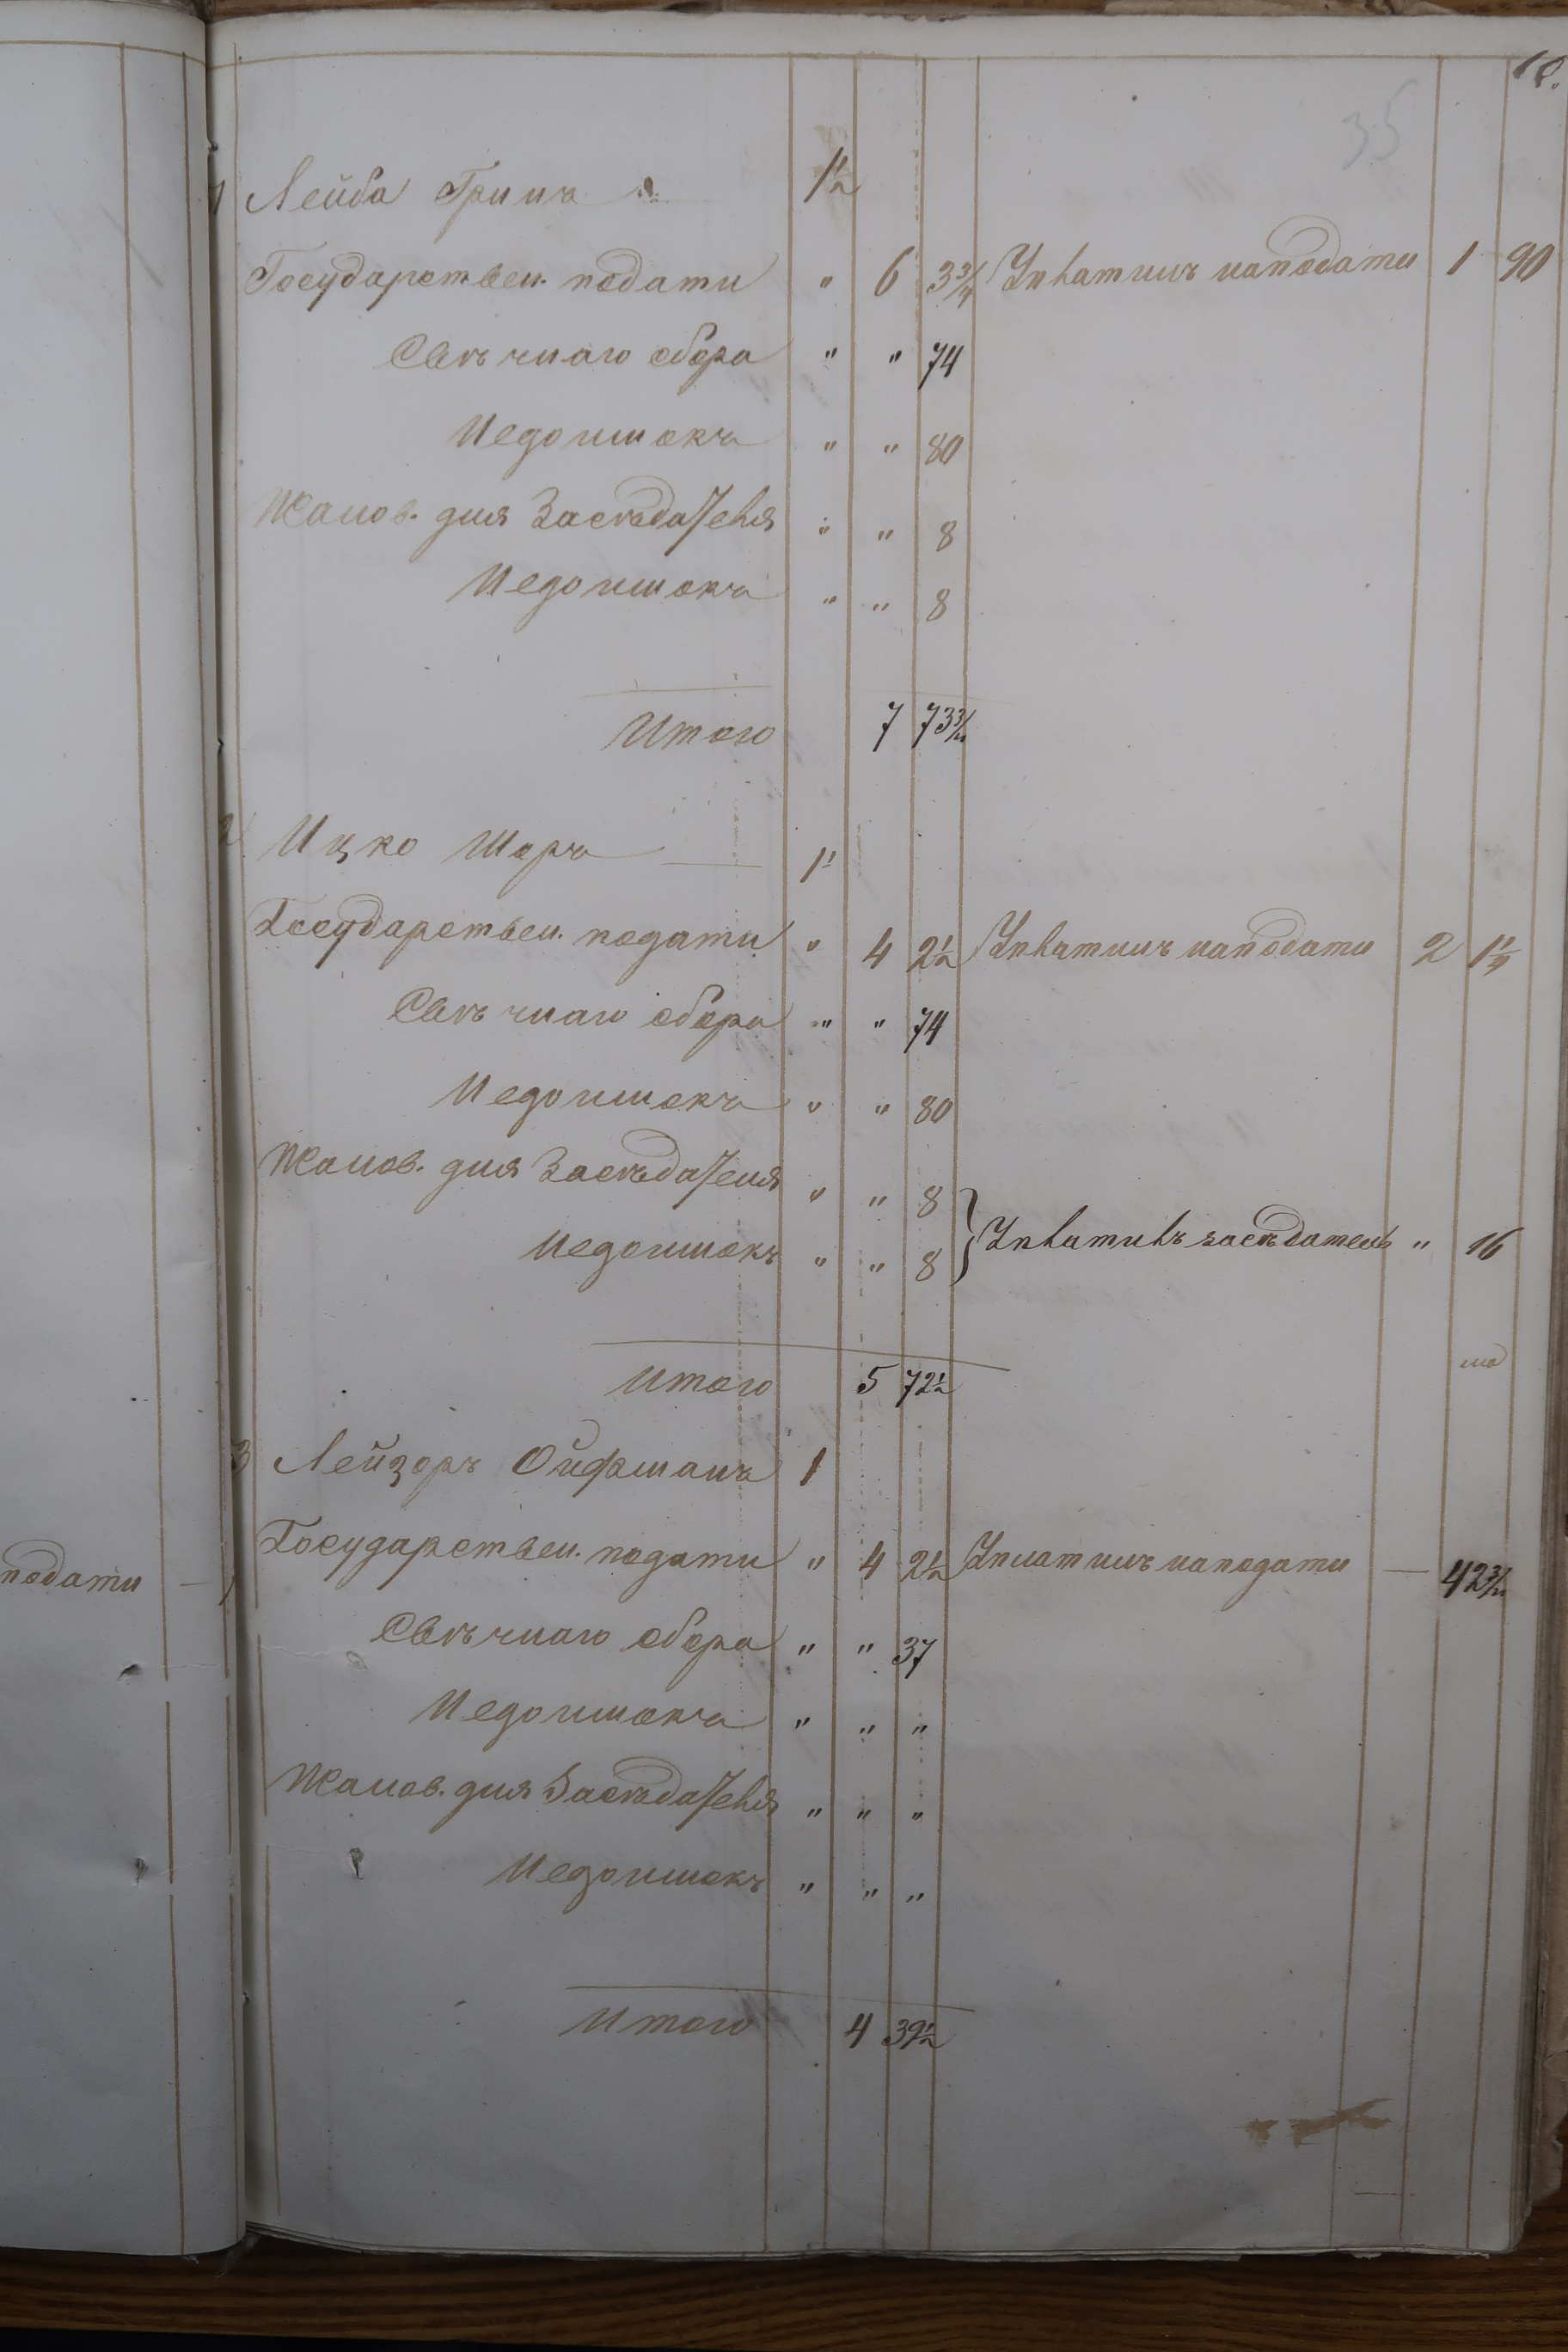 18.
35
1 Лейба Гринъ 1½
Государствен. подати " 6 3¾ Уплатилъ на подати 1 90
Свѣчнаго сбора " " 74
Недоимокъ " " 80
Жалов. для Засѣдателя " " 8
Недоимокъ " " 8
Итого 7 73¾
2 Ицко Шоръ 1
Государствен. подати " 4 2½ Уплатилъ на подати 2 1¼
Свѣчнаго сбора " " 74
Недоимокъ " " 80
Жалов. для Засѣдателя " " 8
Недоимокъ " " 8 } Уплатилъ засѣдателъ " 16
Итого 5 72½
3 Лейзоръ Ойфманъ 1
Государствен. подати " 4 2½ Уплатилъ на подати — 42¾
подати — 1
Свѣчнаго сбора " " 37
Недоимокъ " " "
Жалов. для Засѣдателя " " "
Недоимокъ " " "
Итого 4 39½